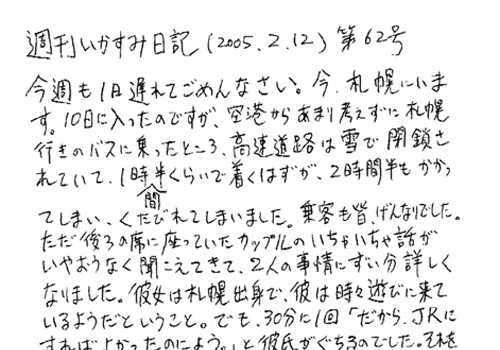 週刊いかすみ日記(2005.2.12) 第62号
今週も1日遅れてごめんなさい。今、札幌にいま
す。10日に入ったのですが、空港からあまり考えずに札幌
行きのバスに乗ったところ、高速道路は雪で閉鎖さ
れていて、1時間半くらいで着くはずが、2時間半もかかっ
てしまい、くたびれてしまいました。乗客も皆、げんなりでした。
ただ後ろの席に座っていたカップルのいちゃいちゃ話が
いやおうなく聞こえてきて、2人の事情にずい分詳しく
なりました。彼女は札幌出身で、彼は時々遊びに来て
いるようだということ。でも、30分に1回「だから、JRに
すればよかったのによう。」と彼氏がぐちるのでした。それを